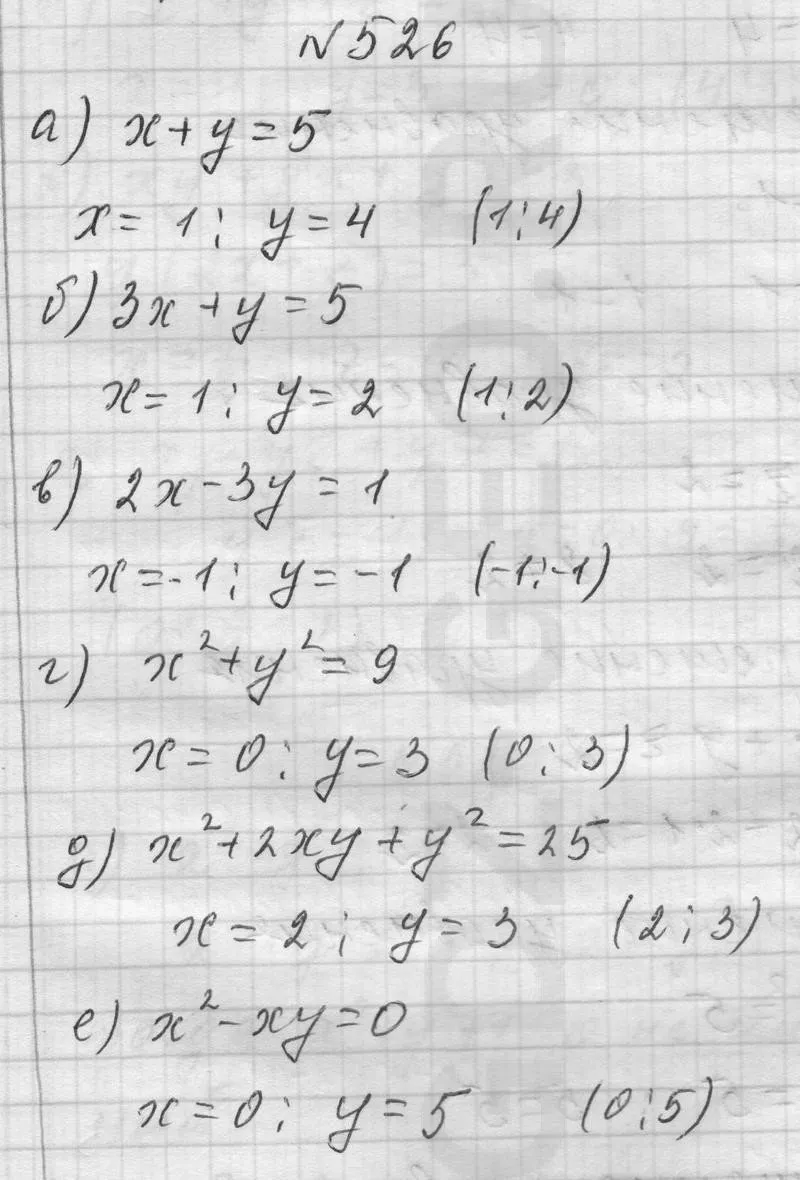 №526
а) x+y=5
x=1; y=4 (1;4)
б) 3x+y=5
x=1; y=2 (1;2)
в) 2x-3y=1
x=-1; y=-1 (-1;-1)
г) x²+y²=9
x=0; y=3 (0;3)
д) x²+2xy+y²=25
x=2; y=3 (2;3)
е) x²-xy=0
x=0; y=5 (0;5)